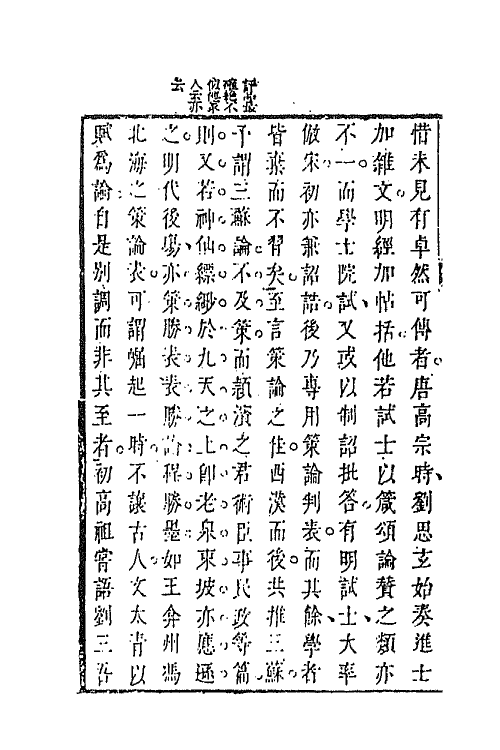 惜未見有卓然可傳者唐高宗時劉思玄始奏進士
加雜文明經加帖括他若試士以箴頌論贊之類亦
不一而學士院試又或以制詔批答有明試士大率
倣宋初亦兼詔誥後乃專用策論判表而其餘學者
皆棄而不習矣至言策論之佳西漢而後共推三蘇
予謂三蘇論不及策而潁濱之君術臣事民政等篇
則又若神仙縹緲於九天之上卽老泉東坡亦應遜
之明代後塲亦策勝表表勝論程勝墨如王弇州馮
北海之策論表可謂崛起一時不讓古人文太青以
賦爲論自是別調而非其至者初高祖嘗語劉三吾
云